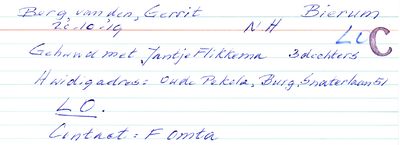 Berg, van den, Gerrit Bierum
20.10.19 N.H LO C
Gehuwd met Jantje Flikkema 3 dochters
Huidig adres: Oude Pekela, Burg. Snaterlaan 51
LO.
Contact: F Omta